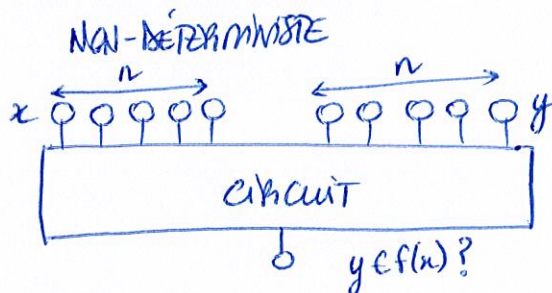 NON-DÉTERMINISTE
n n
x y
CIRCUIT
y ∈ f(x) ?